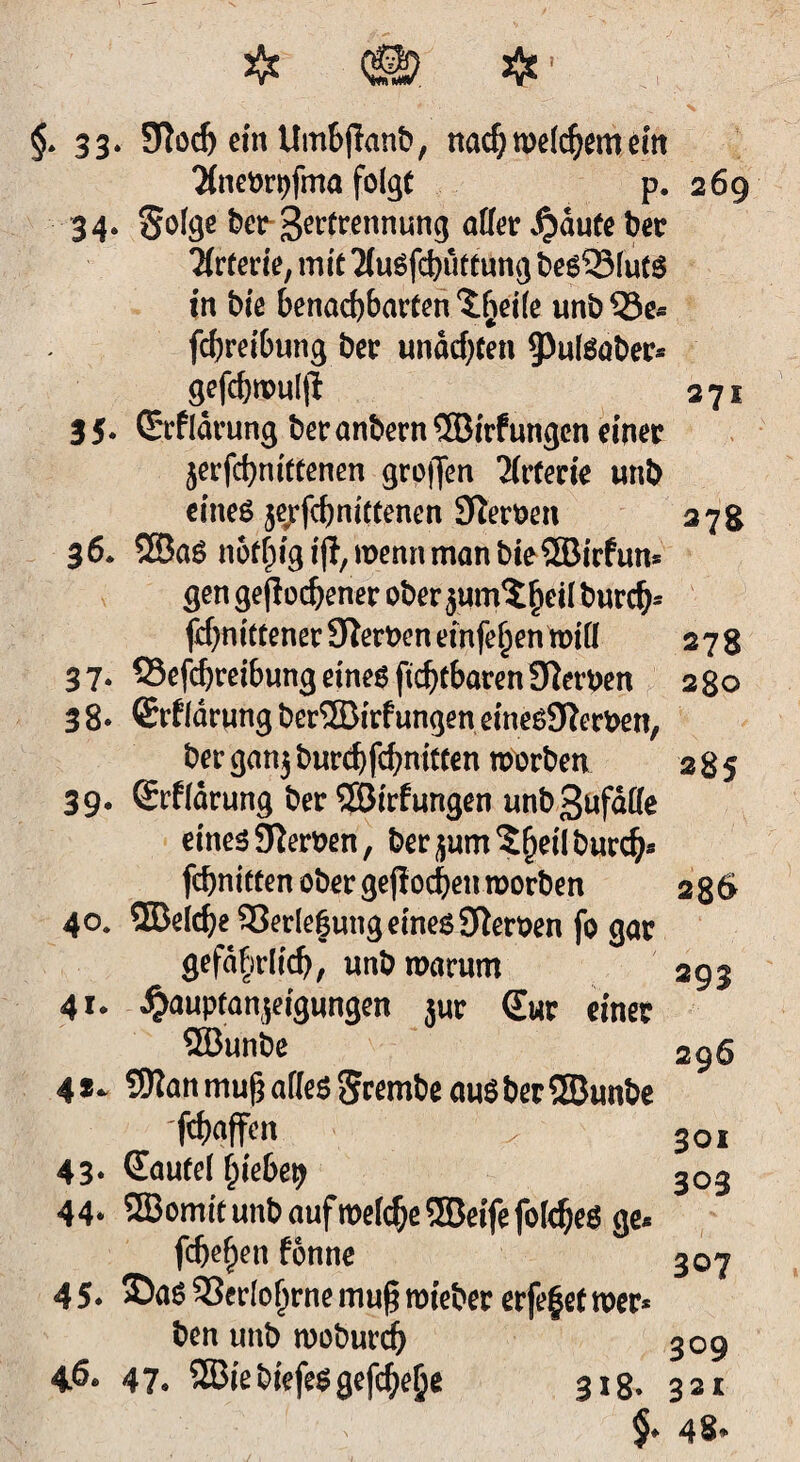 §. 33. Noch ein Umbstand, nach welchem ein
Anevrysma folgt p. 269
34. Folge der Zertrennung aller Häute der
Arterie, mit Ausschüttung des Bluts
in die benachbarten Theile und Be-
schreibung der unächten Pulsader-
geschwulst 271
35. Erklärung der andern Wirkungen einer
zerschnittenen grossen Arterie und
eines zerschnittenen Nerven 278
36. Was nöthig ist, wenn man die Wirkun-
gen gestochener oder zum Theil durch-
schnittener Nerven einsehen will 278
37. Beschreibung eines sichtbaren Nerven 280
38. Erklärung der Wirkungen eines Nerven,
der ganz durchschnitten worden 285
39. Erklärung der Wirkungen und Zufälle
eines Nerven, der zum Theil durch-
schnitten oder gestochen worden 286
40. Welche Verletzung eines Nerven so gar
gefährlich, und warum 293
41. Hauptanzeigungen zur Cur einer
Wunde 296
42. Man muß alles Fremde aus der Wunde
schaffen 301
43. Cautel hiebey 303
44. Womit und auf welche Weise solches ge-
schehen könne 307
45. Das Verlohrne muß wieder ersetzet wer-
den und wodurch 309
46. 47. Wie dieses geschehe 318. 321
§. 48.